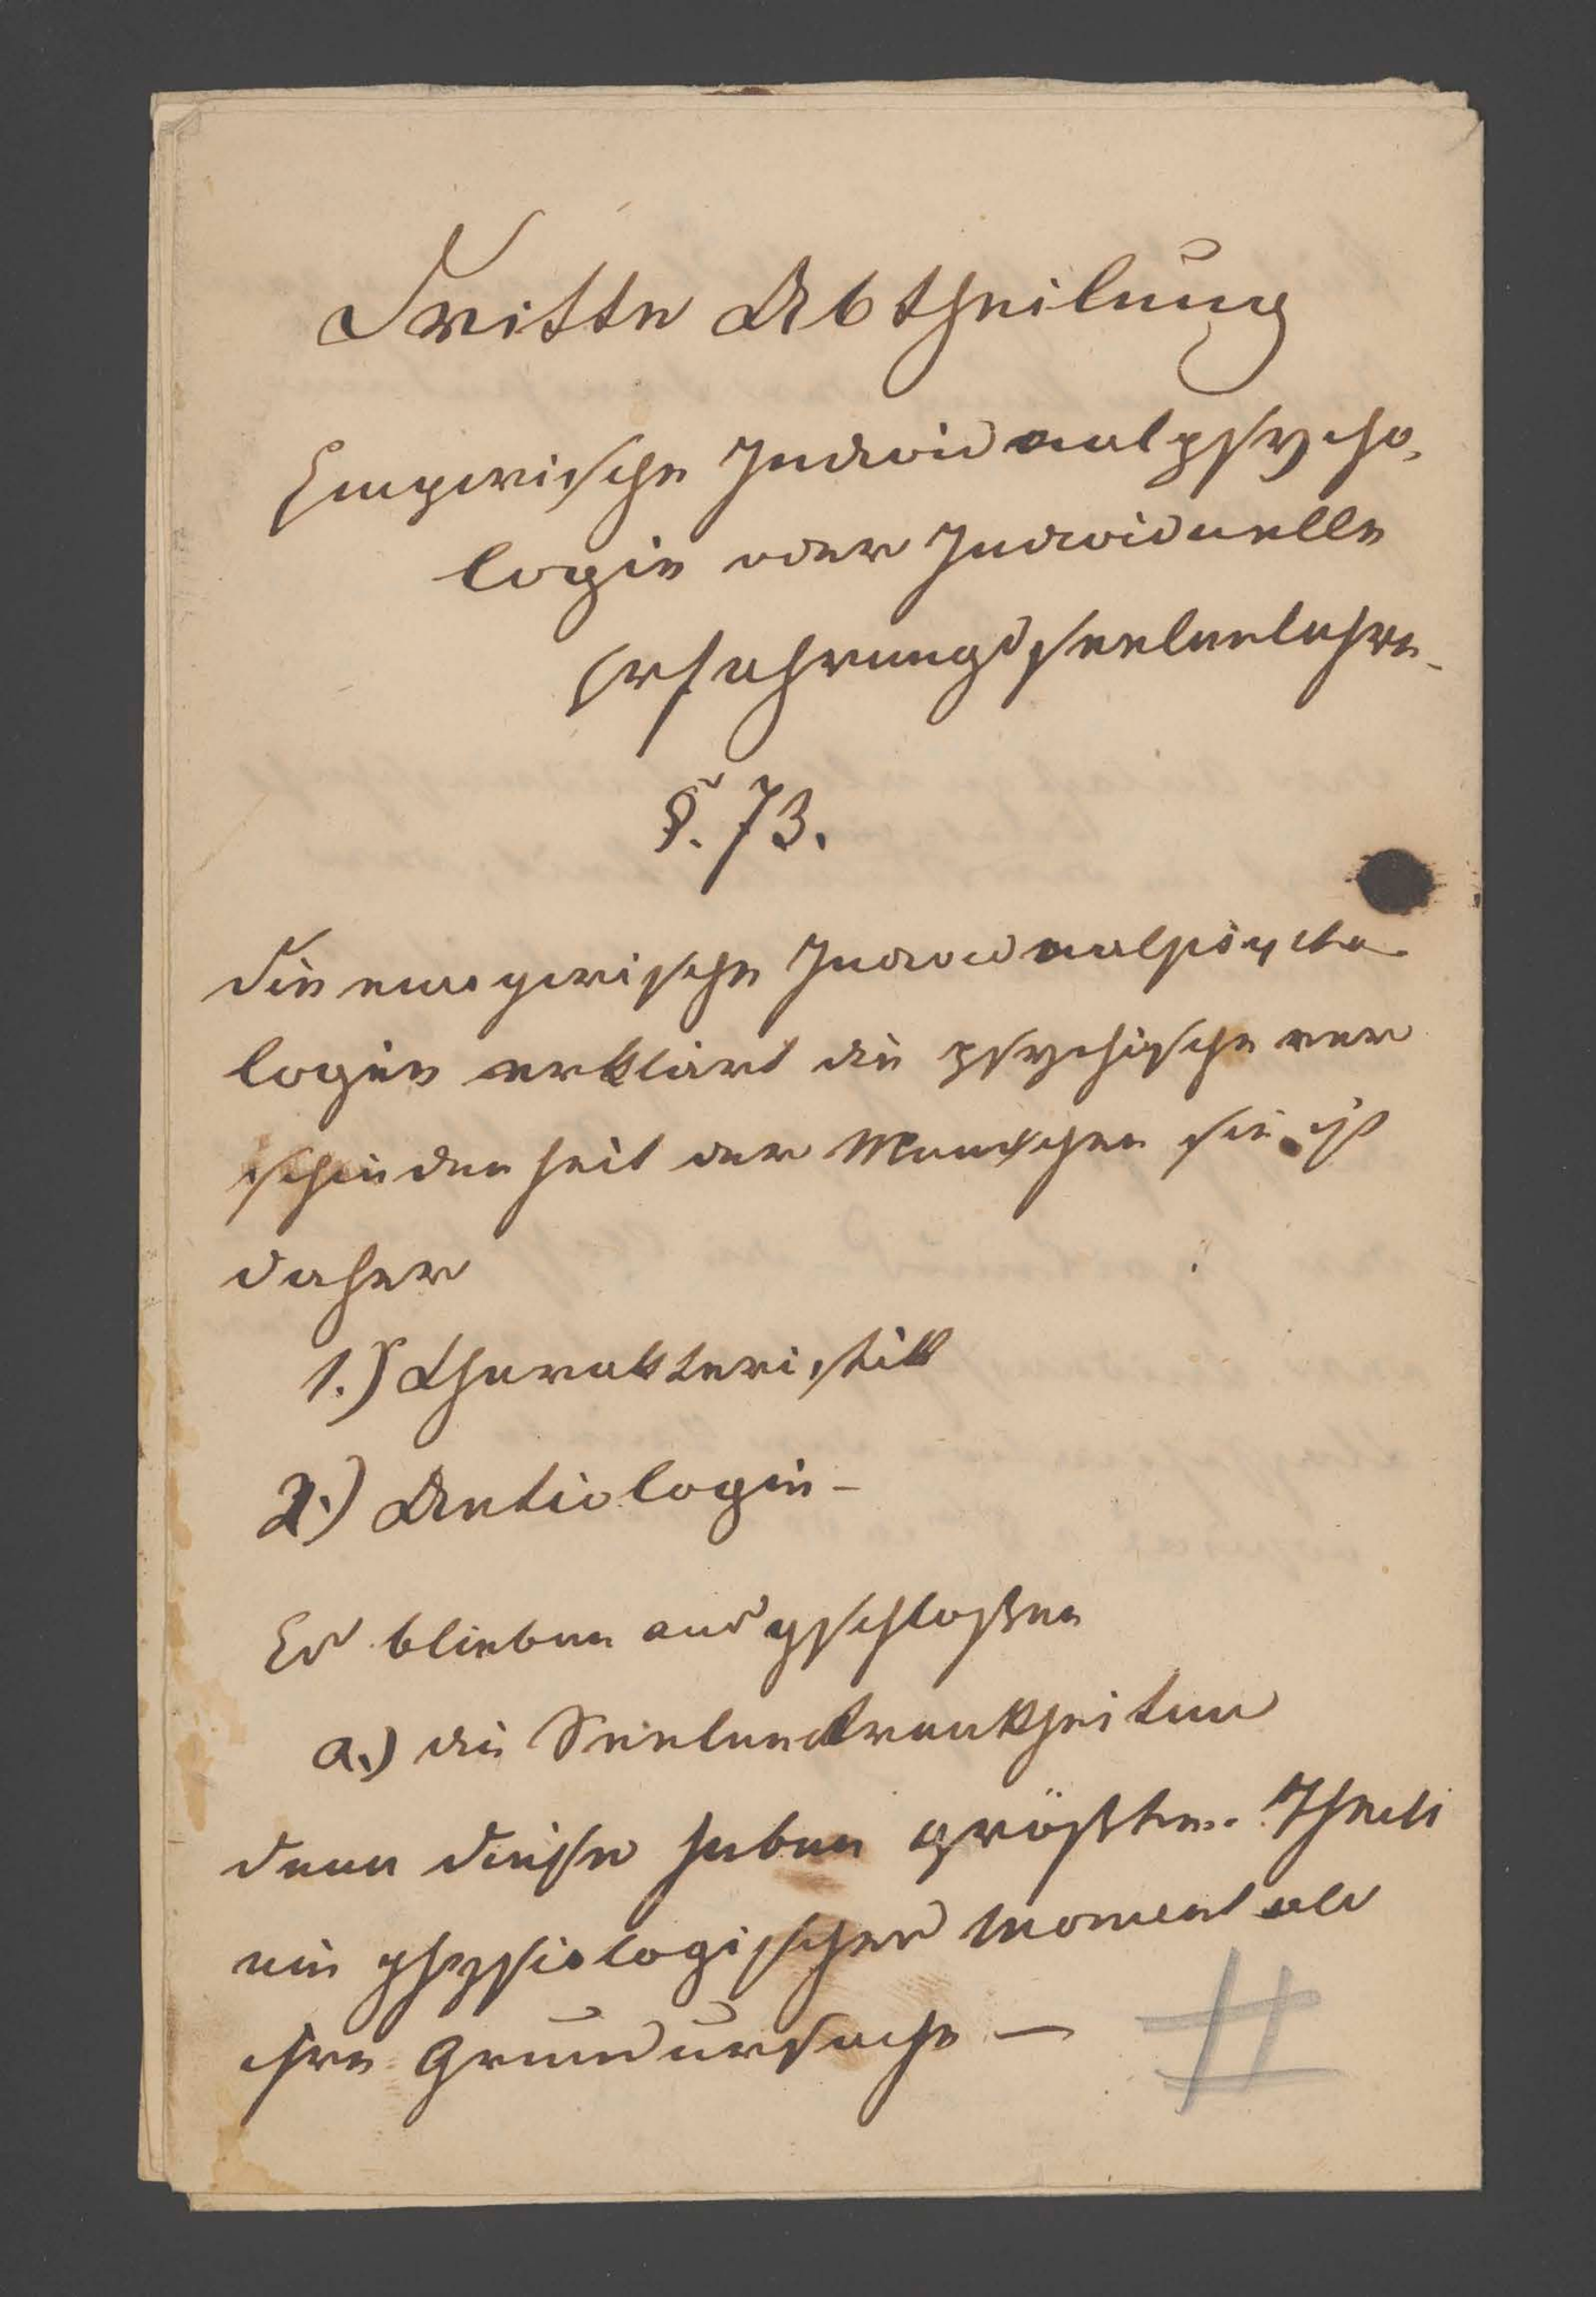 Dritte Abtheilung
Empirische Individualpsycho-
logie oder Individuelle
Erfahrungsseelenlehre.
§. 73.
Die empirische Individualpsycho
logie erklärt die psychische ver
schiedenheit der Menschen sie ist
daher
1.) Charakteristik
2.) Aetiologie -
Es blieben ausgeschloßen
a.) die Seelenkrankheiten
denn diese haben größten Theils
ein physiologisches Moment als
ihre Grundursache —
#